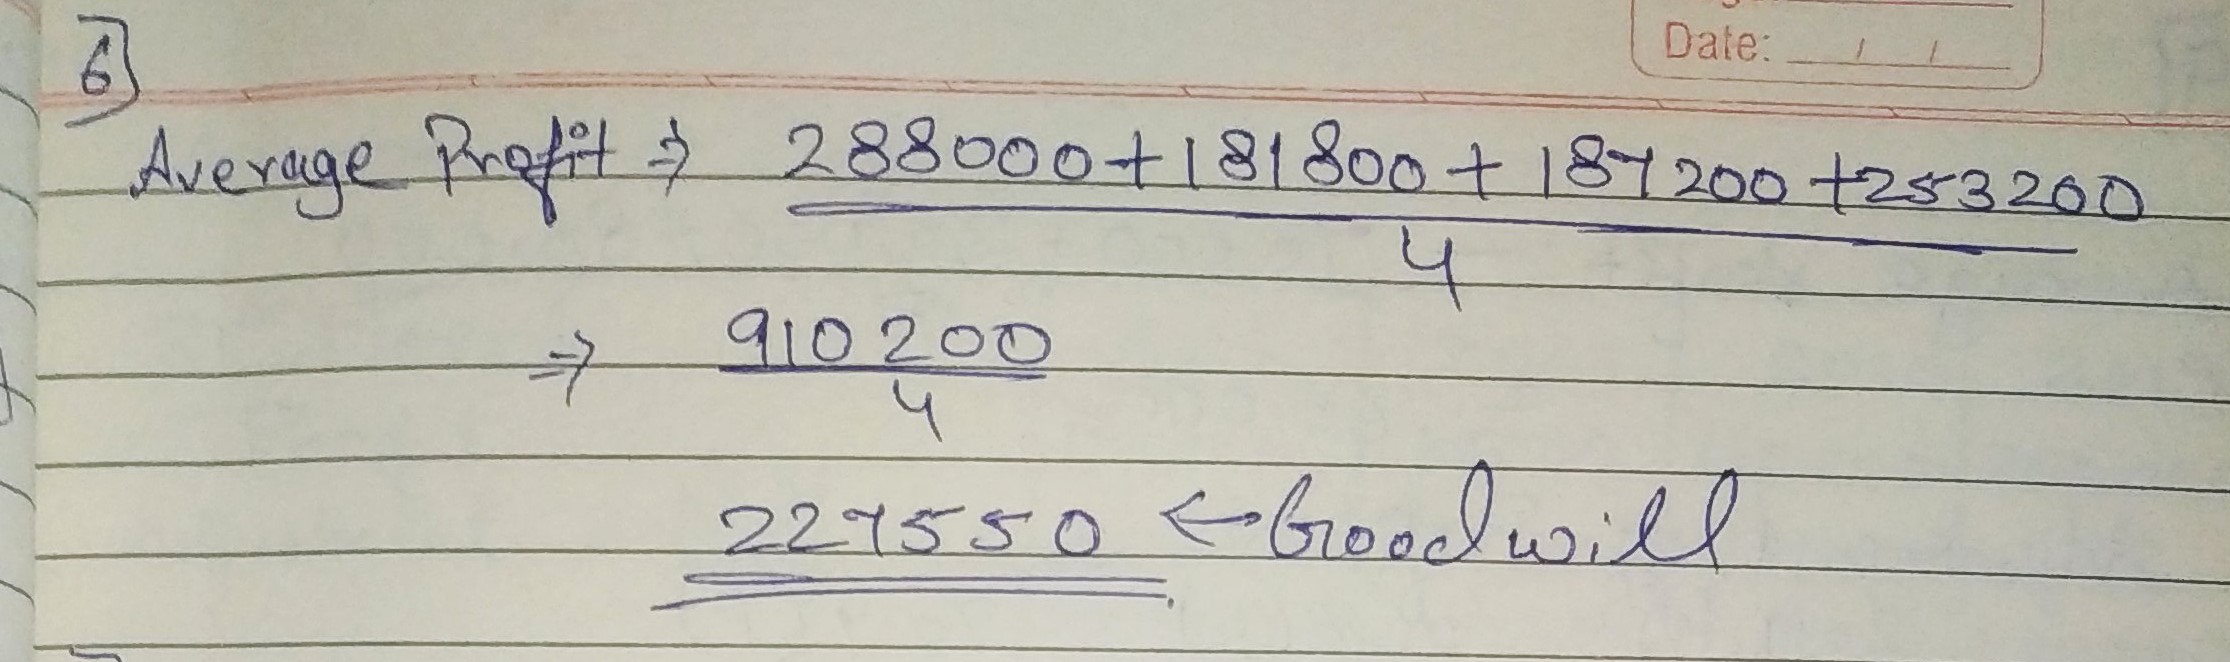 6]
Date: / /
Average Profit ⇒ 288000+181800+187200+253200
4
⇒ 910200
4
227550 ← Goodwill